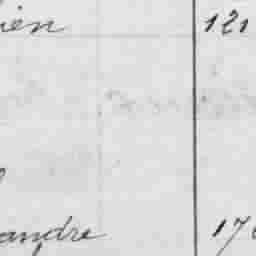 ien 121
andre 176